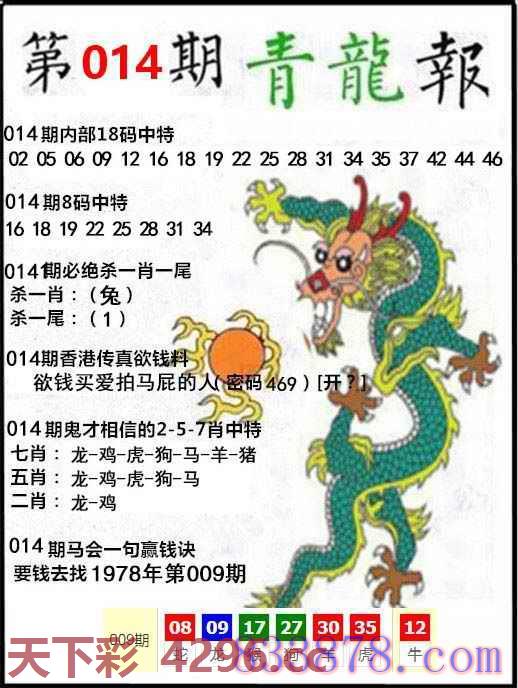 第014期青龍報
014期内部18码中特
02 05 06 09 12 16 18 19 22 25 28 31 34 35 37 42 44 46
014期8码中特
16 18 19 22 25 28 31 34
014期必绝杀一肖一尾
杀一肖：（兔）
杀一尾：（1）
014期香港传真欲钱料
欲钱买爱拍马屁的人（密码469）[开？]
014期鬼才相信的2-5-7肖中特
七肖：龙-鸡-虎-狗-马-羊-猪
五肖：龙-鸡-虎-狗-马
二肖：龙-鸡
014期马会一句赢钱诀
要钱去找1978年第009期
009期 08 09 17 27 30 35 12
蛇 龙 猴 狗 羊 虎 牛
天下彩
838878.com